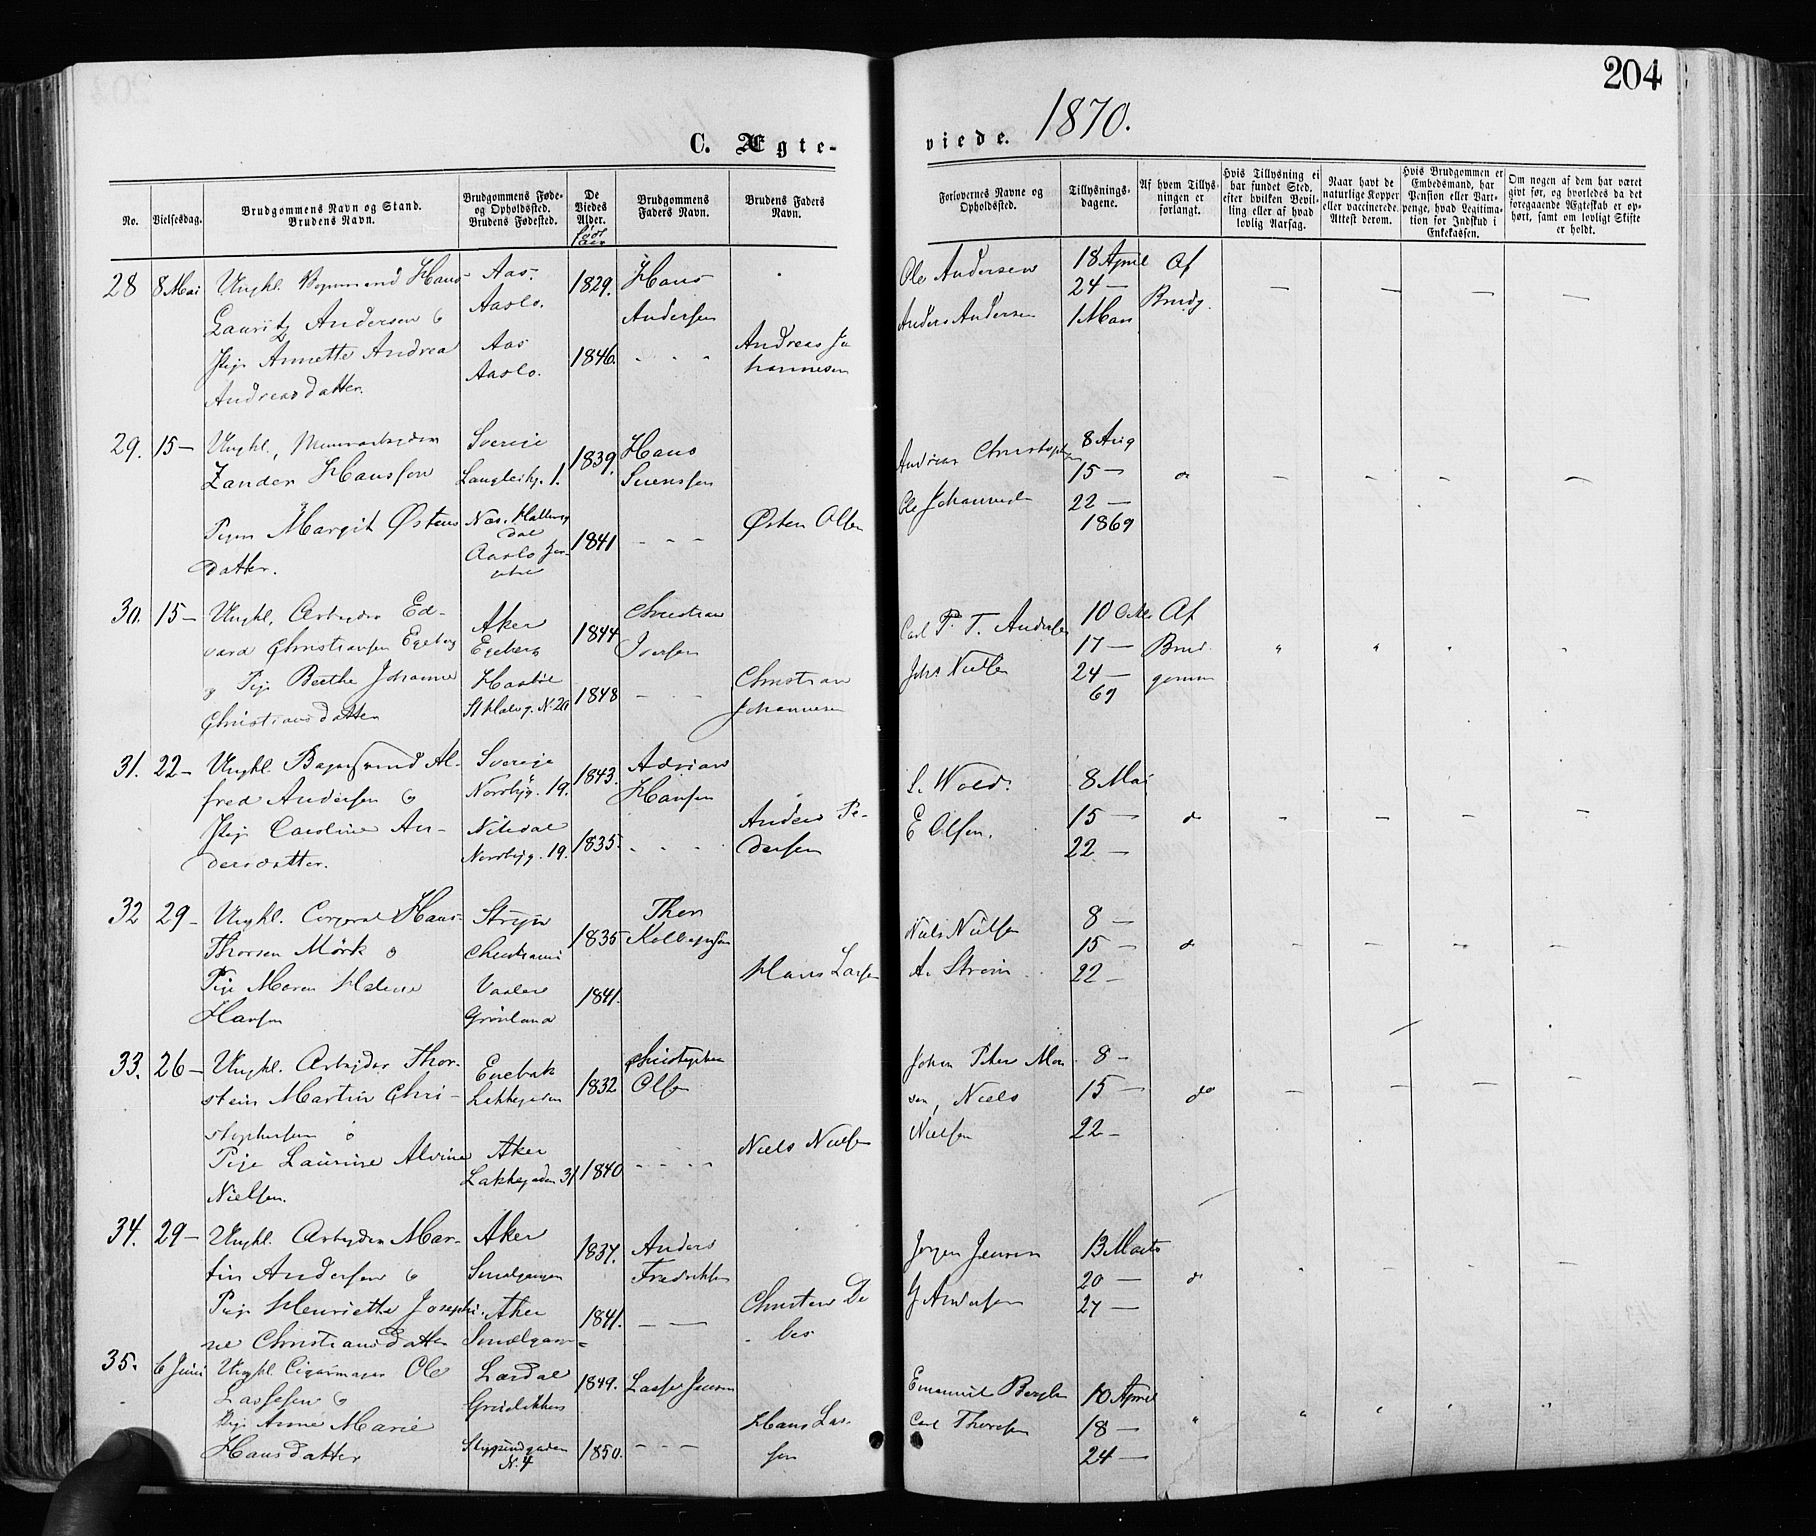 204
1870.
C. Ægte-
viede.
No.
Vielsesdag.
Brudgommens Navn og Stand.
Brudens Navn.
Brudgommens Føde-
og Opholdssted.
Brudens Fødested.
De
Viedes
Alder.
født
Brudgommens
Faders Navn.
Brudens Faders
Navn.
Forlovernes Navne og
Opholdssted.
Tillysnings-
dagene.
Af hvem Tillys-
ningen er
forlangt.
Hvis Tillysning ei
har fundet Sted,
efter hvilken Bevil-
ling eller af hvad
lovlig Aarsag.
Naar havt de
naturlige Kopper
eller vaccinerede.
Attest derom.
Hvis Brudgommen er
Embedsmand, har
Pension eller Vart-
penge, hvad Legitima-
tion for Indskud i
Enkekassen.
Om nogen af dem har været
givt før, og hvorledes da det
foregaaende Ægteskab er op-
hørt, samt om lovligt Skifte
er holdt.
28 8 Mai Ungkl. Hans
Lauritz Andersen o
Pige Annette Andrea
Andreasdatter.
Aas.
Aaslo.
Aas
Aaslo.
1829.
1846.
Hans
Andersen
Andreas Jo
hannesen
Ole Andersen
Anders Andersen
18 April
24 —
1 Mai
Af
Brudg.
29. 15 — Ungkl., Murerarbeider
Zander Hansson
Pigen Margit Østens
datter.
Sverige
1.
Næs, Halling
dal
Aaslo
1839.
1841
Hans
Svensson
Østen Olsen
Andreas
Ole Johannes
8 Aug
15 —
22 —
1869
do
30. 15 — Ungkl. Arbeider Ed-
vard Christiansen Egeberg
o Pige Berthe Johanne
Christiansdatter
Aker
Egeberg
St Halvg. N. 20
1844
1848
Christian
Iversen
Christian
Johannesen
Carl P. T. Andersen
Johs Nielsen
10 Octbr
17 —
24 —
69
Af
Brud
gomm
31. 22 — Ungkl. Bagersvend Al-
fred Andersen o
Pige Caroline An-
dersdatter.
Sverige
Norrbyg. 19.
Nitedal
Norrbyg. 19.
1843.
1835.
Adrian
Hansen
Anders Pe-
dersen
L. Wold.
E Olsen.
8 Mai
15 —
22 —
do
32 29 — Ungkl. Corporal Hans
Thorsen Mörk o
Pige Maren Helene
Hansen
Stryn
Christiania
Vaaler
Grönland
1835
1841.
Thor
Kolbeinsen
Hans Larsen
Niels Nielsen
A. Strøm
8 —
15 —
22 —
do
33. 26 — Ungkl. Arbeider Thor-
stein Martin Chri-
stophersen o
Pige Laurine Alvine
Nielsen.
Enebak
Lakkegaden
Aker
Lakkegaden 31
1832
1840
Christopher
Olsen
Niels Nielsen
Johan Peter Mon
sen, Niels
Nielsen
8 —
15 —
22 —
do
34. 29 — Ungkl. Arbeider Mar-
tin Andersen o
Pige Henriette Josephi-
ne Christiansdatter
Aker
Smalgangen
Aker
Smalgan-
1837.
1841.
Anders
Fredriksen
Christian
Jørgen Jensen
G Andersen
13 Marts
20 —
27 —
do
35. 6 Juni Ungkl. Cigarmager Ole
Lassesen o
Pige Anne Marie
Hansdatter
Lærdal
N. 4
1849.
1850.
Lasse Jensen
Hans Lar-
sen
Emanuel Bergh
Carl Thoresen
10 April
18 —
24 —